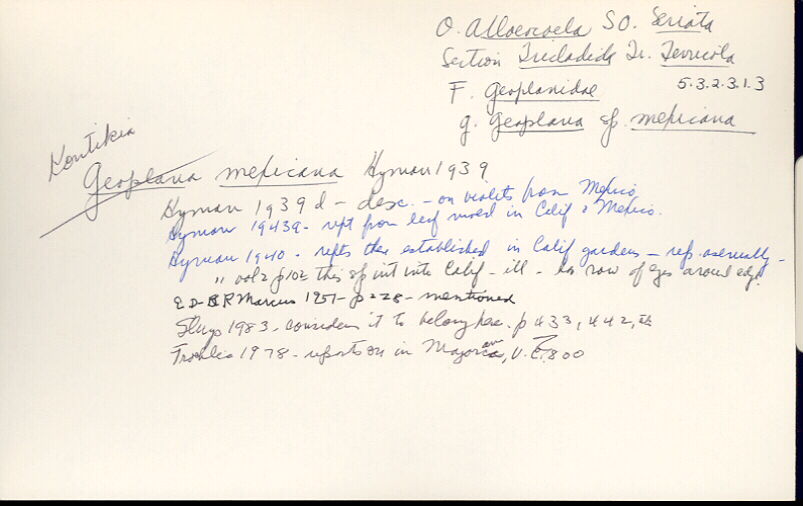 O. Alloeocoela SO. Seriata
Section Tricladida Tr. Terricola
F. Geoplanidae 5.3.2.3.1.3
g. Geoplana sp. mexicana
Kontikia
Geoplana mexicana Hyman 1939
Hyman 1939d - desc. - on violets from Mexico
Hyman 1943a - rept from leaf mold in Calif & Mexico.
Hyman 1940 - repts this established in Calif gardens - rep. asexually -
" vol 2 p 102 this sp int into Calif - ill - has row of eyes around edge.
E D-B R Marcus 1951 - p 228 - mentioned
1983 - considers it to belong here. p 433, 442,
1978 - reports on in 800